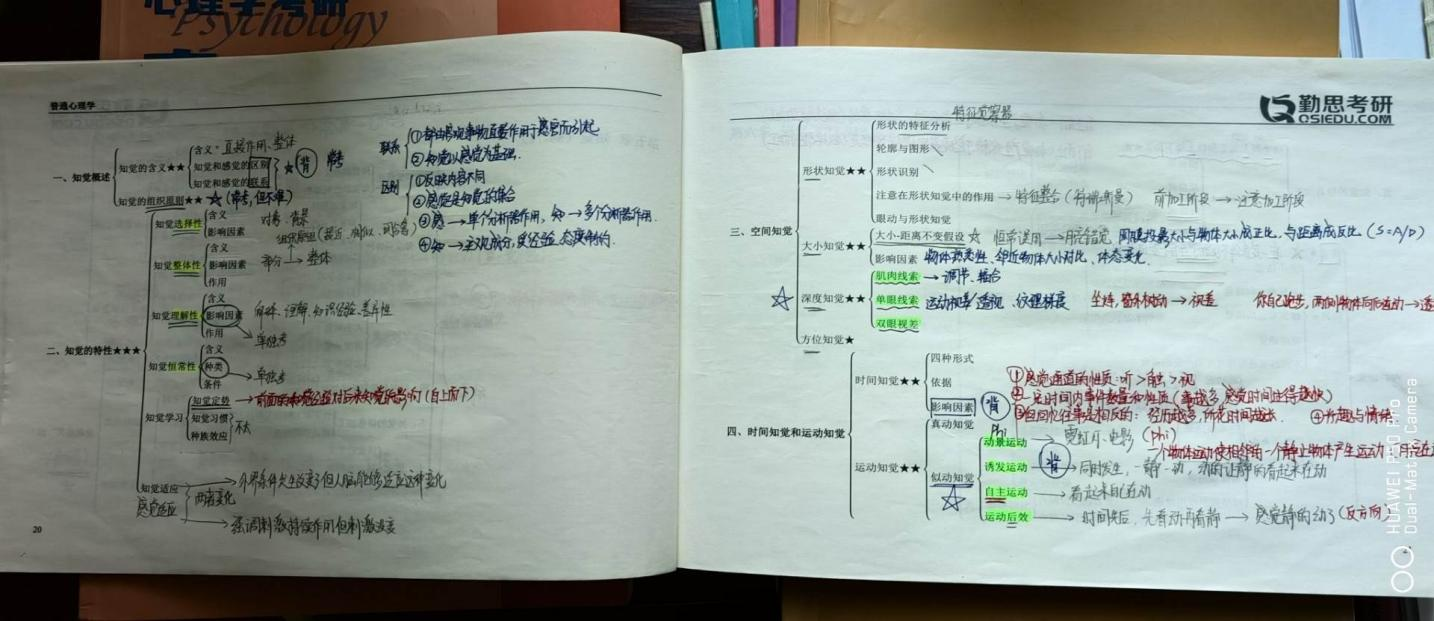 心理学考研
Psychology
普通心理学
一、知觉概述
知觉的含义★★
含义 直接作用、整体
知觉和感觉的区别
知觉和感觉的联系
背 常考
知觉的组织原则★★ (常考,但不难)
联系
①都由客观事物直接作用于感官而引起
②知觉以感觉为基础.
区别
①反映内容不同
②感觉是知觉的集合
③感→单个分析器作用,知→多个分析器作用.
④知→主观成分,受经验、态度制约.
二、知觉的特性★★★
知觉选择性
含义 对象、背景
影响因素
知觉整体性
含义
影响因素 部分→整体
作用
知觉理解性
含义
影响因素
作用
单独考
知觉恒常性
含义
种类 → 单独考
条件
知觉学习
知觉定势
知觉习惯
种族效应
知觉适应
感觉适应
两者变化
外界条件发生改变了但人脑能够适应这种变化
强调刺激持续作用但刺激没变
20
勤思考研
QSIEDU.COM
三、空间知觉
形状知觉★★
形状的特征分析
轮廓与图形
形状识别
注意在形状知觉中的作用 → 特征整合(特瑞斯曼) 前加工阶段 → 注意加工阶段
眼动与形状知觉
大小知觉★★
大小-距离不变假设 恒常误用→月亮错觉 网膜投影大小与物体大小成正比,与距离成反比(S=A/D)
影响因素 物体熟悉性、邻近物体大小对比、体态变化.
深度知觉★★
肌肉线索 → 调节、辐合
单眼线索 运动视差/透视 纹理梯度
双眼视差
方位知觉★
四、时间知觉和运动知觉
时间知觉★★
四种形式
依据
影响因素 背
①感觉通道的性质:听>触>视
②一定时间内事件数量和性质(事越多,感觉时间过得越快)
④兴趣与情绪
运动知觉★★
真动知觉
似动知觉
Phi
动景运动 → 霓虹灯、电影 (phi)
诱发运动 背 → 同时发生,一静一动,动的让静的看起来在动
自主运动 → 看起来自己在动
运动后效 → 时间先后,先看动再看静 → 感觉静的动了(反方向)
HUAWEI P40 Pro
Dual-Matrix Camera